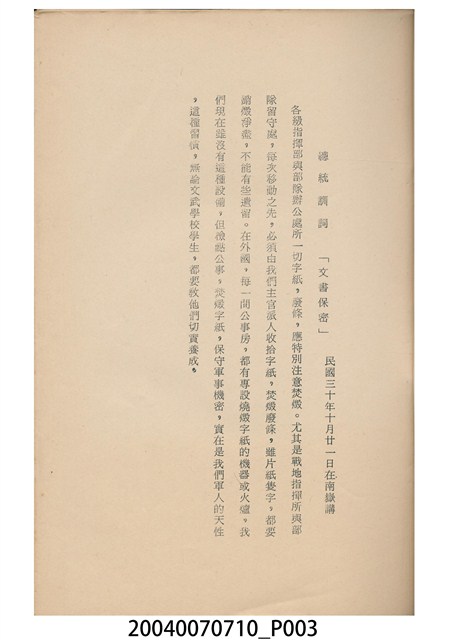 總統訓詞 「文書保密」 民國三十年十月廿一日在南嶽講
各級指揮部與部隊辦公處所一切字紙,廢條,應特別注意焚燬。尤其是戰地指揮所與部
隊留守處,每次移動之先,必須由我們主官派人收拾字紙,焚燬廢條,雖片紙隻字,都要
請燬淨盡,不能有些遺留。在外國,每一間公事房,都有專設燒燬字紙的機器或火爐,我
們現在雖沒有這種設備,但檢點公事,焚燬字紙,保守軍事機密,實在是我們軍人的天性
,這種習慣,無論文武學校學生,都要教他們切實養成。
20040070710_P003